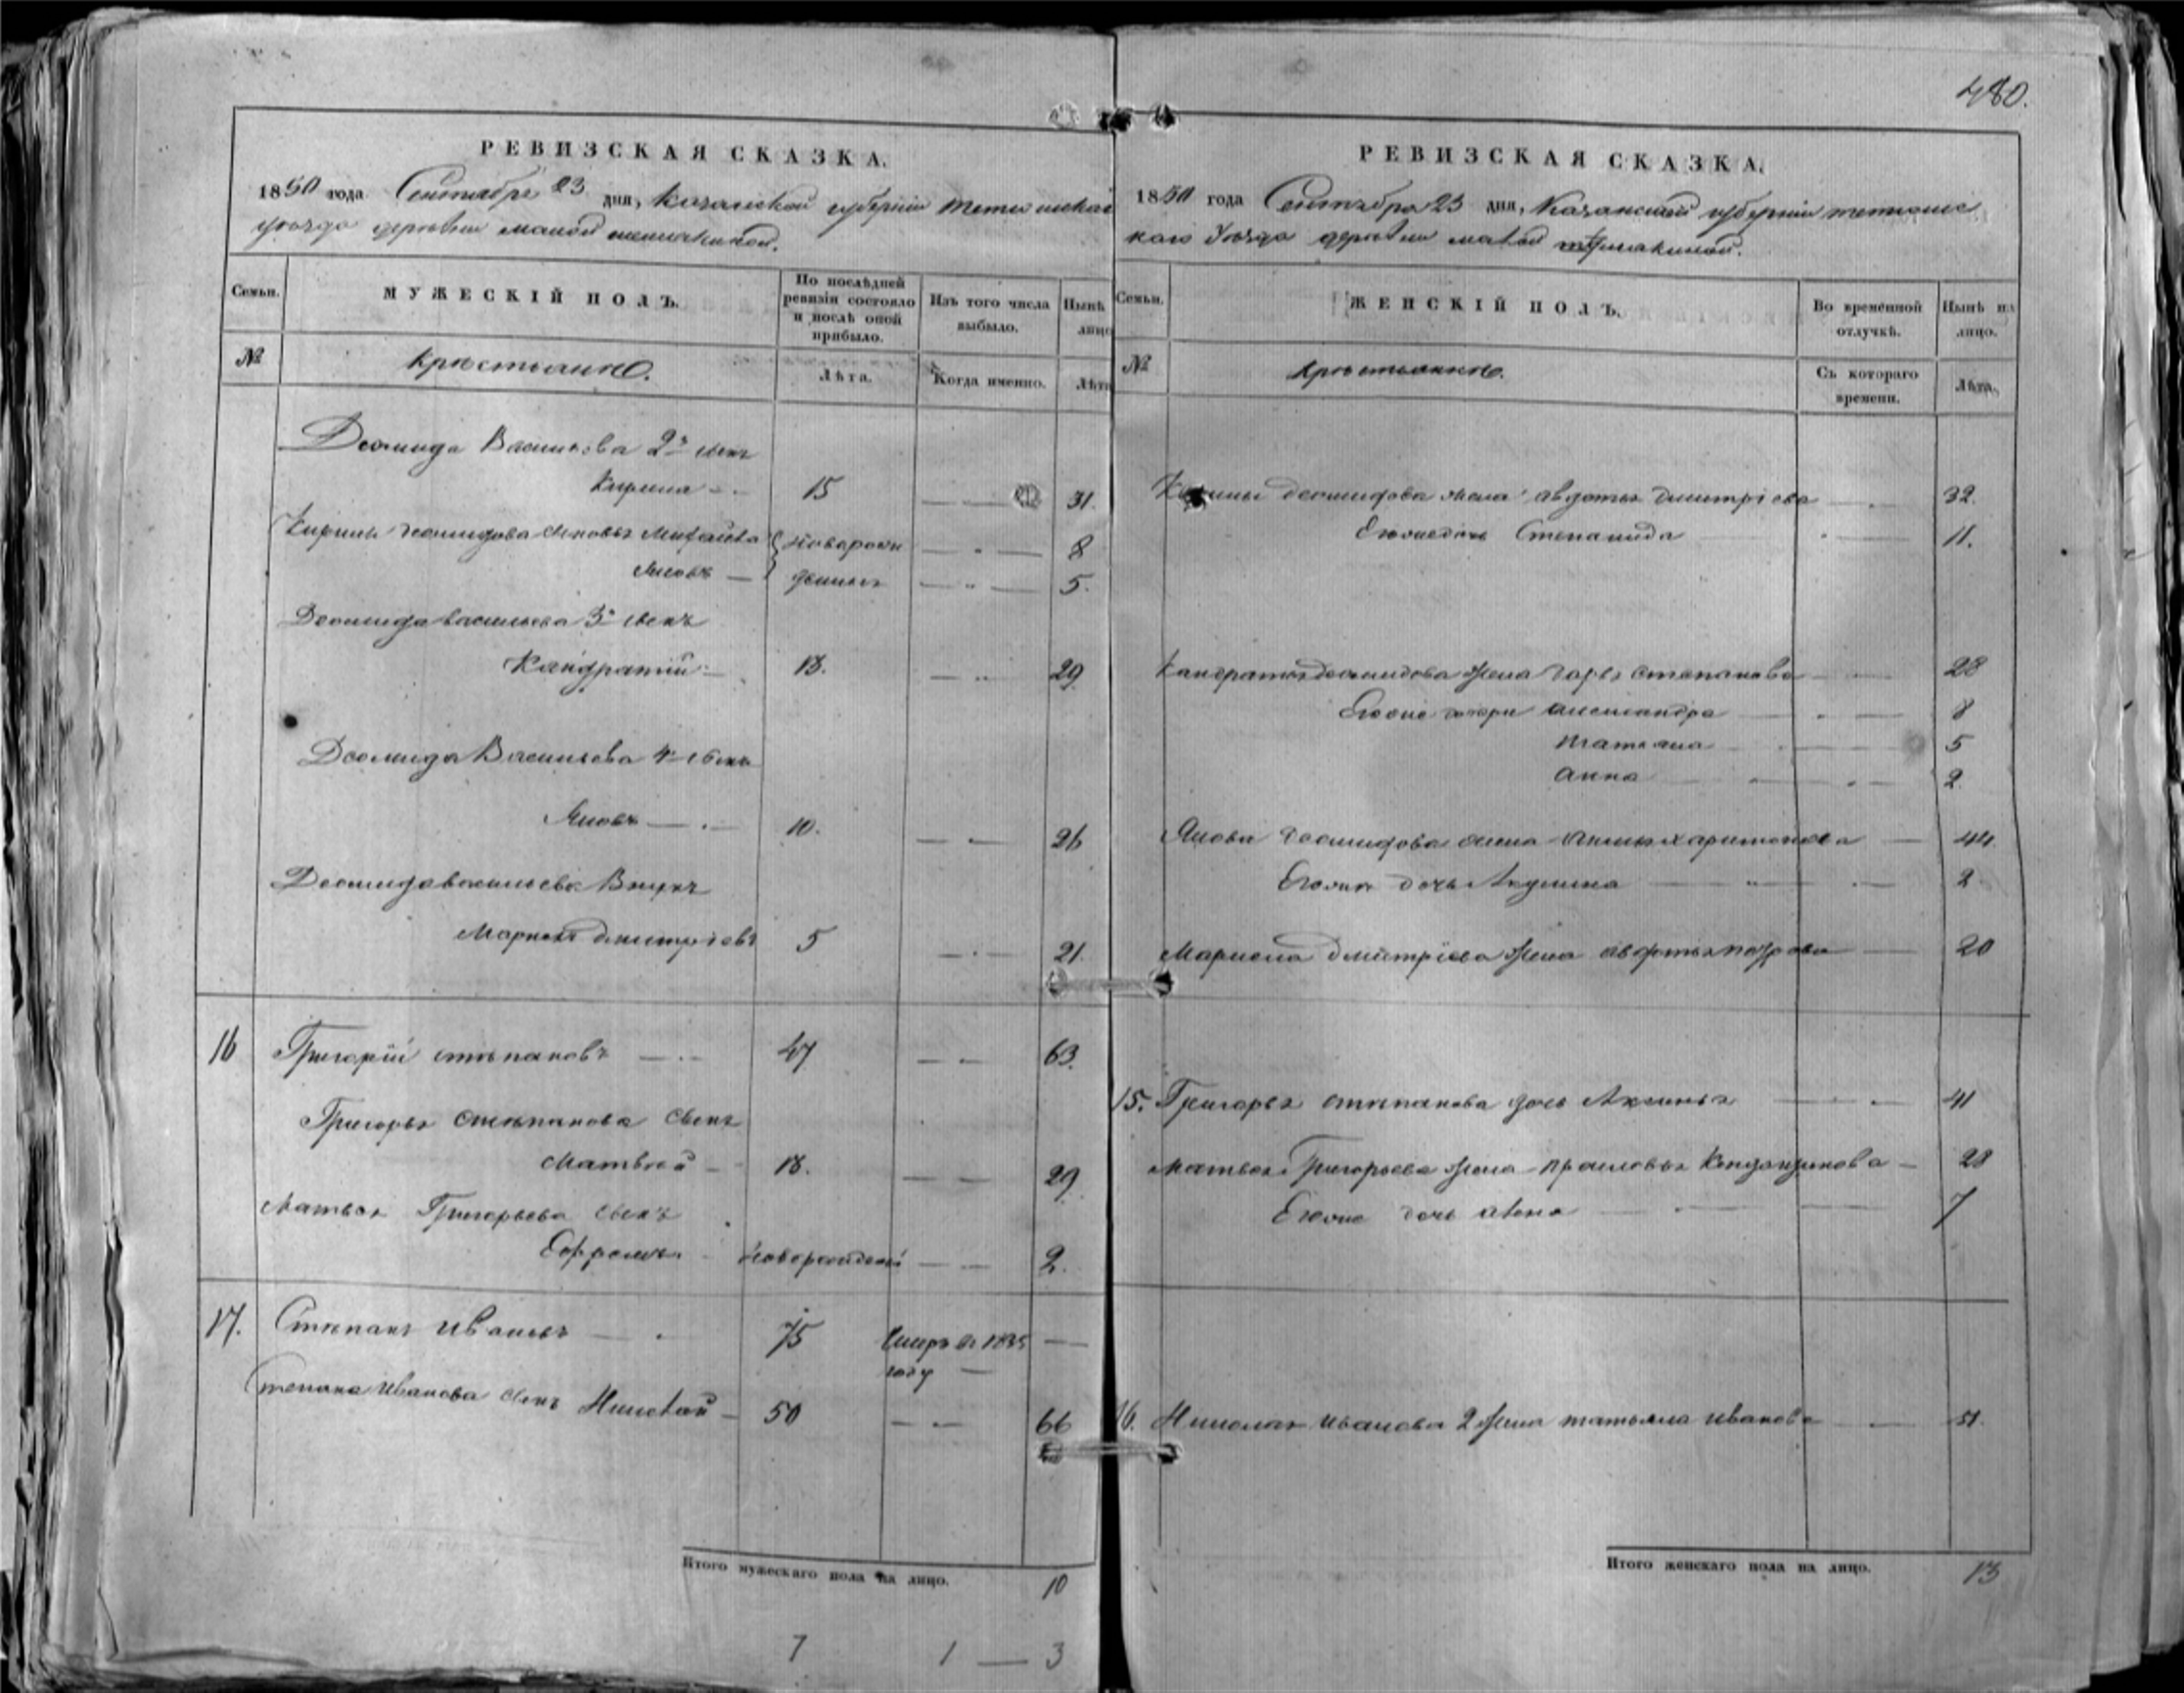 480.
РЕВИЗСКАЯ СКАЗКА.
1850 года Сентября 23 дня, Казанской губернии Тетюшскаго
уезда деревни малой
Семьи.
МУЖЕСКІЙ ПОЛЪ.
По послѣдней ревизіи состояло и послѣ оной прибыло.
Изъ того числа выбыло.
Нынѣ на лицо
№
крестьяне.
Лѣта.
Когда именно.
Лѣта
Деомида Васильева 2й сынъ
Кирила 15 31.
Кирилы Деомидова сыновья новорож 8
Яковъ денные 5.
Деомида Васильева 3й сынъ
Кандратій 13. 29
Деомида Васильева 4й сынъ
Яковъ 10. 26
Деомида Васильева Внукъ
Маркелъ Дмитріевъ 5 21.
16 Григорій Степановъ 47 63.
Григорья Степанова сынъ
Матвей 13. 29
Матвея Григорьева сынъ
Ефремъ новорожденный 2.
17. Степанъ Ивановъ 75 умеръ въ 1835 году
Степана Иванова сынъ Николай 50 66
Итого мужескаго пола на лицо. 10
7 1 — 3
РЕВИЗСКАЯ СКАЗКА.
1850 года Сентября 23 дня, Казанской губерніи тетюшс
каго Уезда деревни малой
Семьи.
ЖЕНСКІЙ ПОЛЪ.
Во временной отлучкѣ.
Нынѣ на лицо.
№
крестьянке.
Съ котораго времени.
Лѣта.
Кирилы Деомидова жена авдотья Дмитріева 32.
Степанида 11.
Кандратья Деомидова жена Дарья степанова 28
Егоже дочери александра 8
татьяна 5
анна 2.
Якова Деомидова жена харитонова 44
Егоже дочь Акулина 2
Маркела Дмитріева жена авдотья 20
15. Григорья степанова дочь Аксинья 41
Матвея Григорьева жена 28
Егоже дочь 7
16. Николая иванова 2 жена татьяна иванова 51.
Итого женскаго пола на лицо. 13